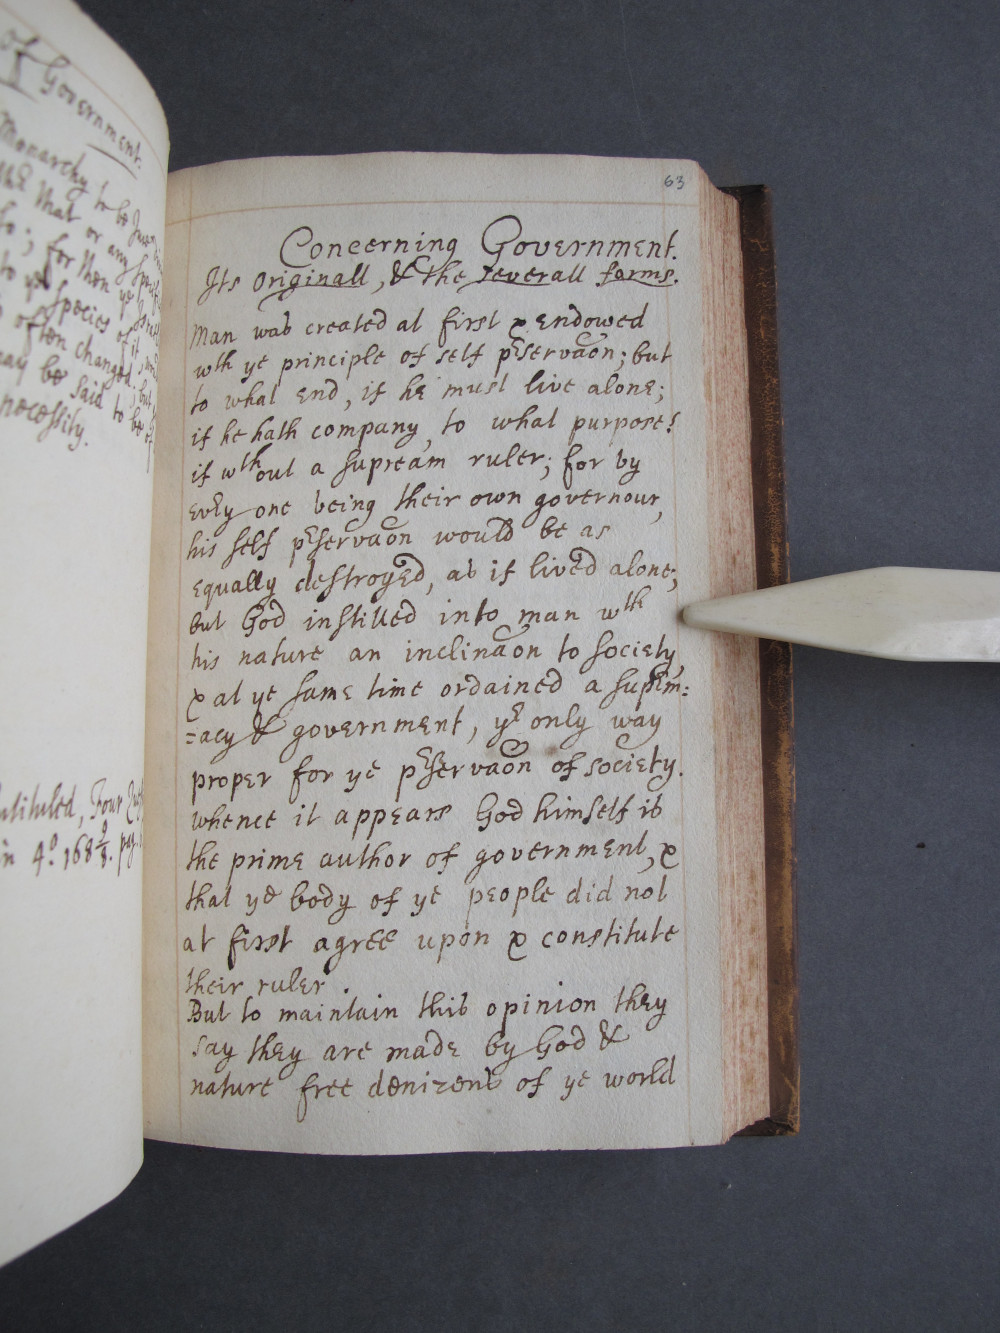 of Government.
Monarchy to be
that or any
so; for then ye
to ye species of it
often changed; but
may be said to be
necessity.
in 4.º 168 8/9. pag.
63
Concerning Government.
Its originall, & the severall forms.
Man was created at first & endowed
wth ye principle of self pʳservaõn; but
to what end, if he must live alone;
if he hath company, to what purpose?
if wthout a supream ruler; for by
evʳy one being their own governour,
his self pʳservaõn would be as
equally destroyed, as if lived alone;
but God instilled into man wth
his nature an inclinaõn to society,
& at ye same time ordained a supʳm:
=acy & government, yᵉ only way
proper for ye pʳservaõn of society.
whence it appears God himself is
the prime author of government, &
that ye body of ye people did not
at first agree upon & constitute
their ruler.
But to maintain this opinion they
say they are made by God &
nature free denizens of ye world